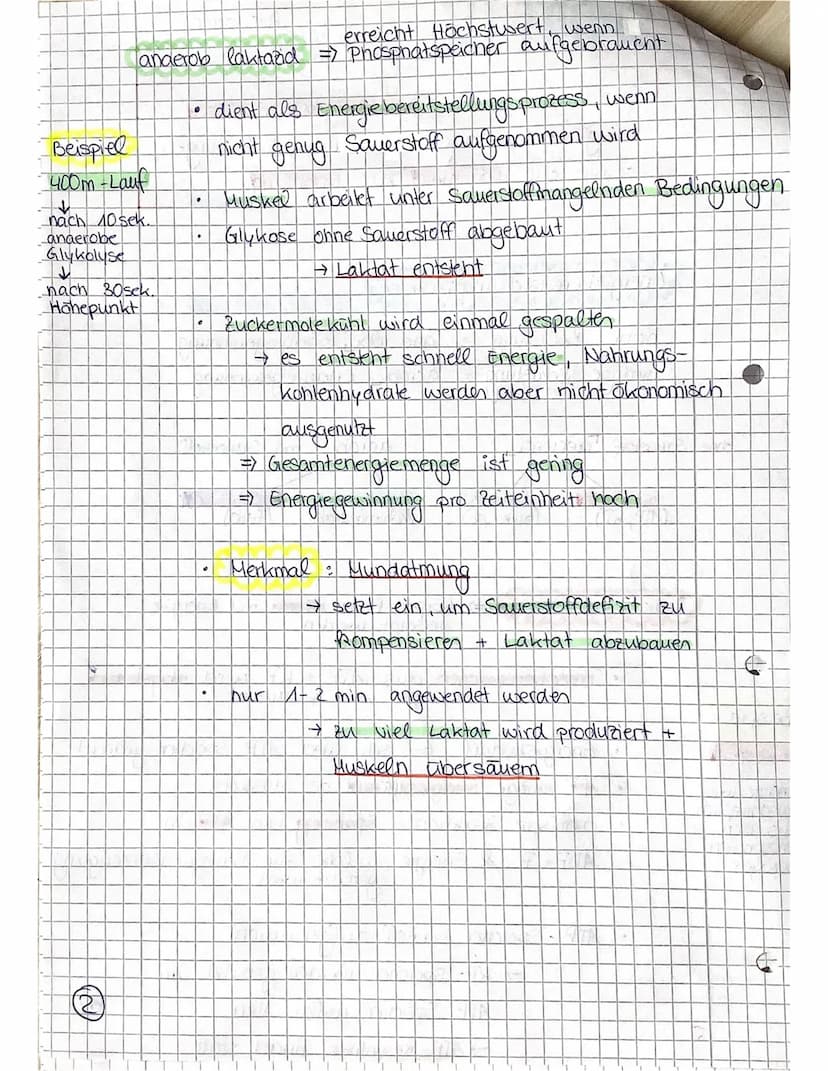 erreicht Höchstwert, wenn
anaerob laktazid ⇒ Phosphatspeicher aufgebraucht
• dient als Energiebereitstellungsprozess, wenn
nicht genug Sauerstoff aufgenommen wird
Beispiel
400m-Lauf
↓
nach 10sek.
anaerobe
Glykolyse
↓
nach 30sek.
Höhepunkt
• Muskel arbeitet unter Sauerstoffmangelnden Bedingungen
• Glykose ohne Sauerstoff abgebaut
→ Laktat entsteht
• Zuckermolekühl wird einmal gespalten
→ es entsteht schnell Energie, Nahrungs-
kohlenhydrate werden aber nicht ökonomisch
ausgenutzt
⇒ Gesamtenergiemenge ist gering
⇒ Energiegewinnung pro Zeiteinheit hoch
• Merkmal : Mundatmung
→ setzt ein, um Sauerstoffdefizit zu
kompensieren + Laktat abzubauen
• nur 1-2 min angewendet werden
→ zu viel Laktat wird produziert +
Muskeln übersäuern
2